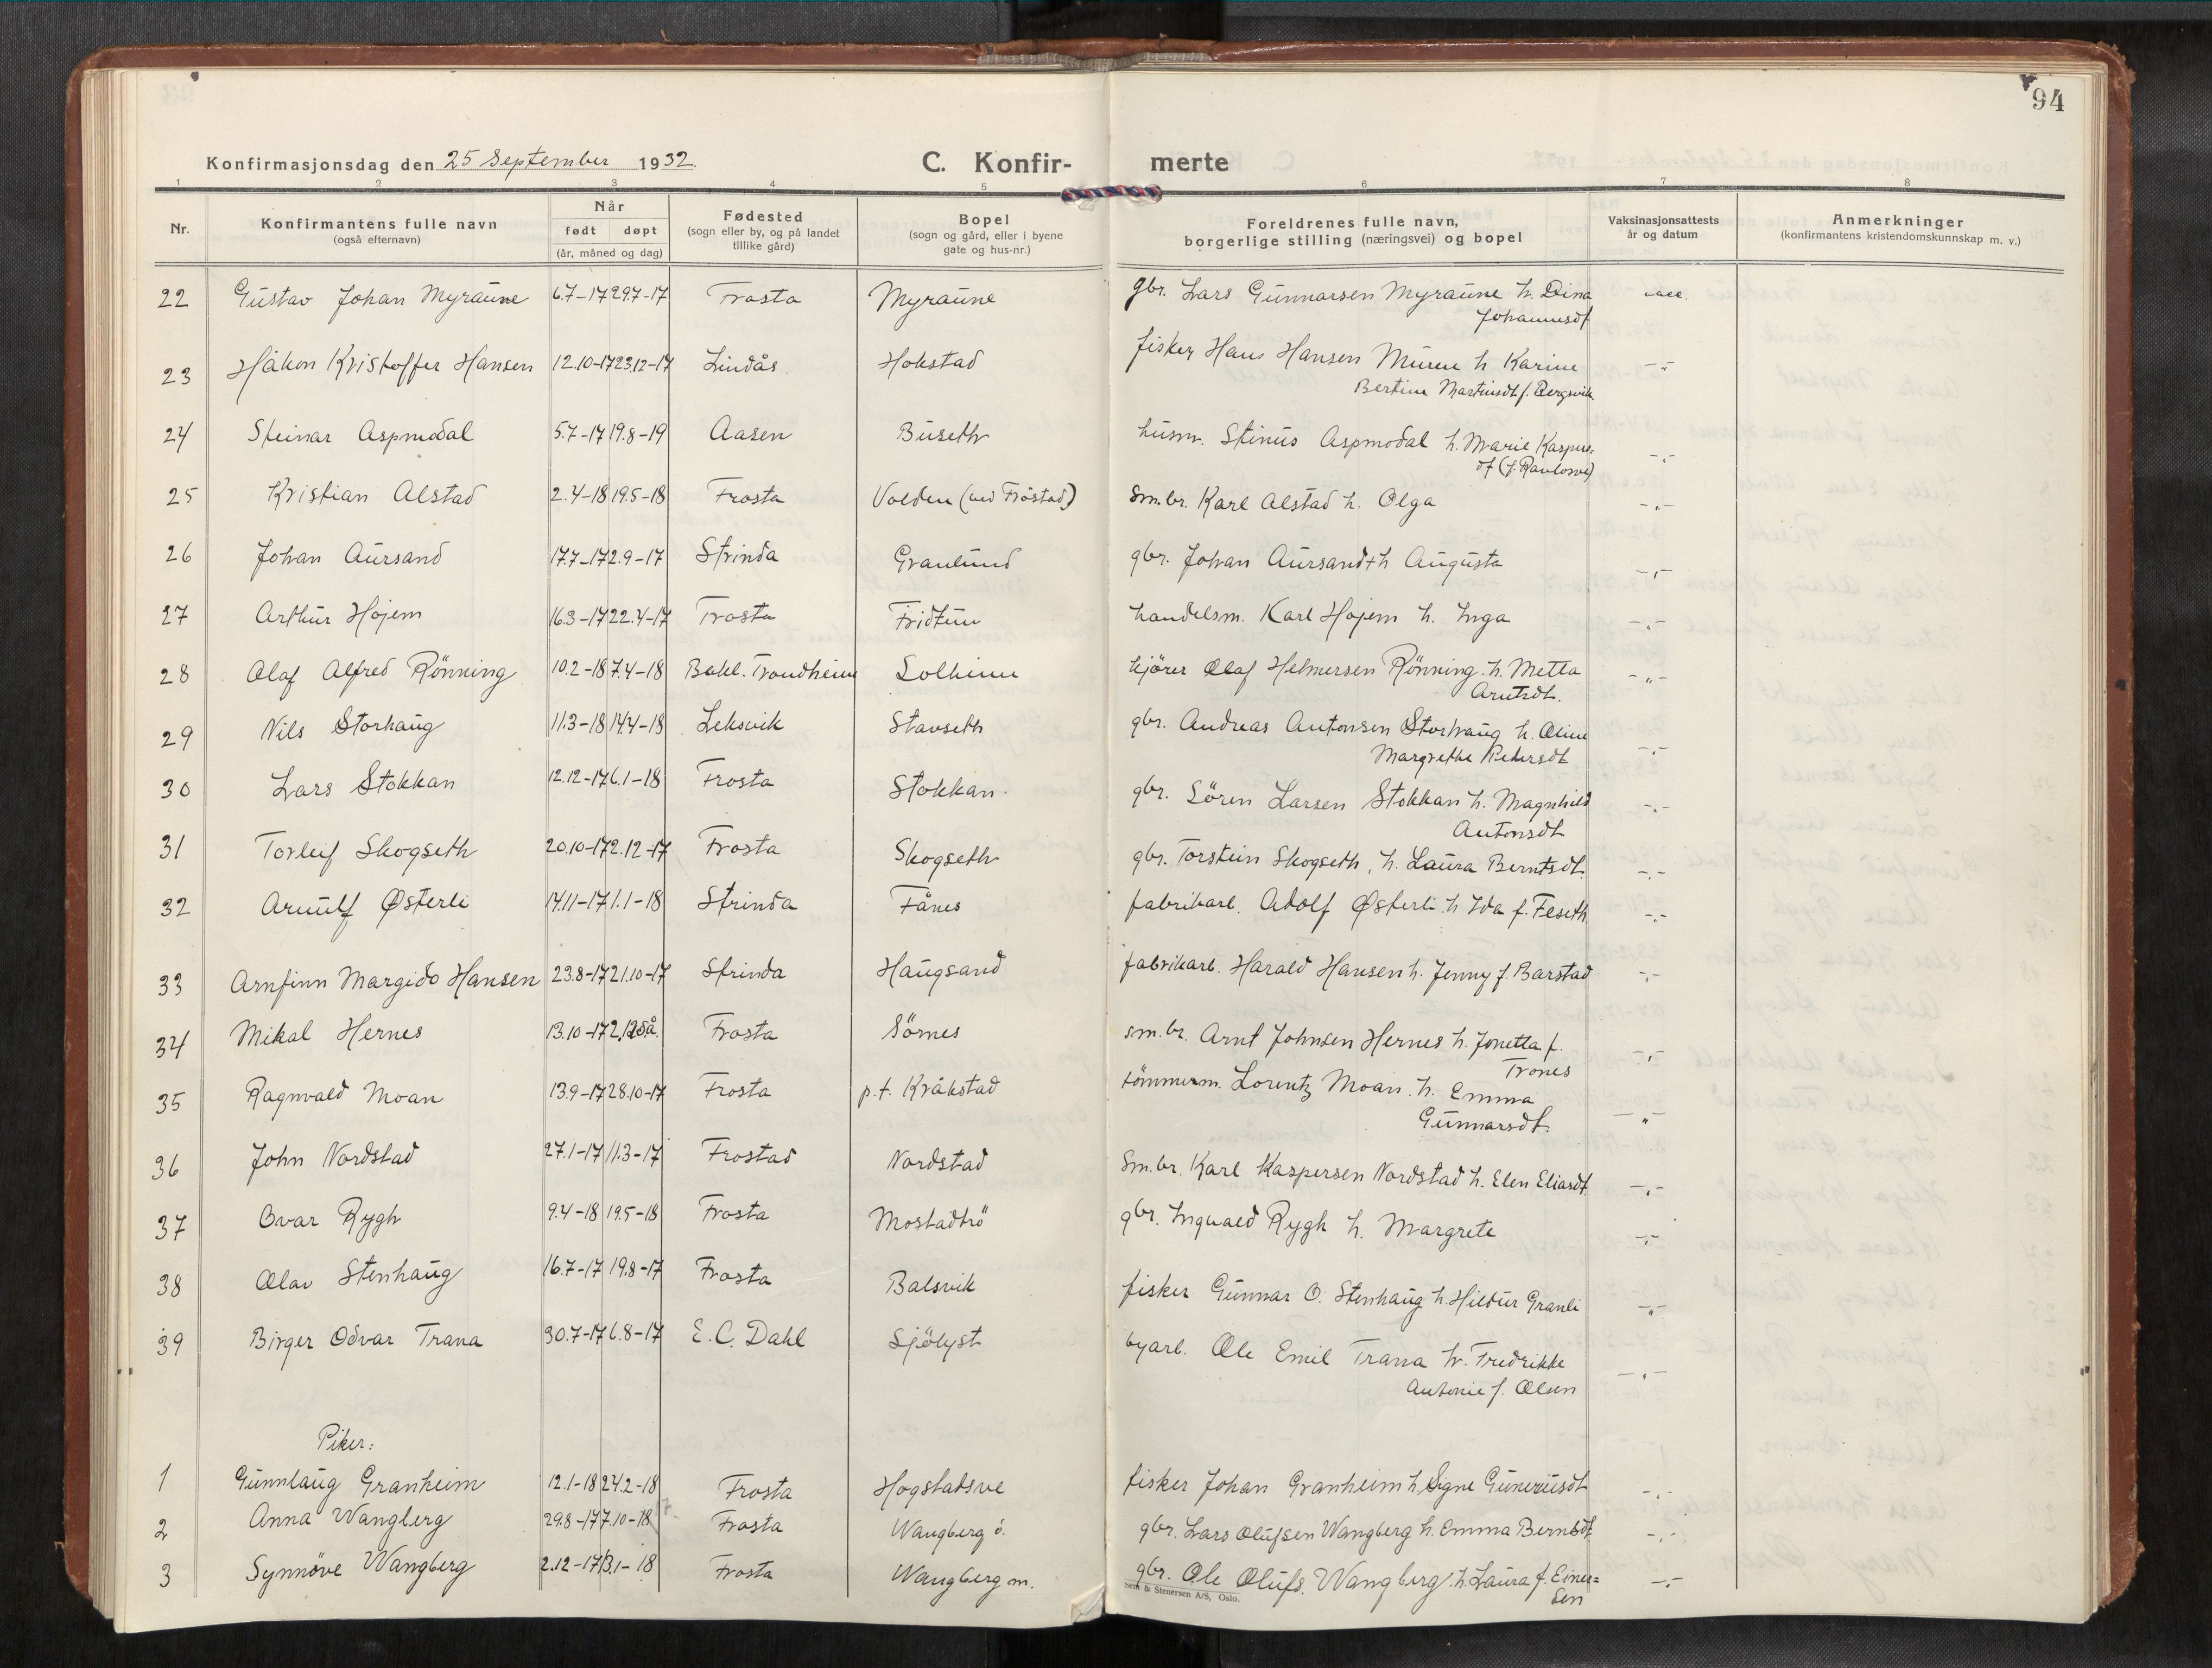 94
Konfirmasjonsdag den 25 September 1932.
C. Konfir- merte
1 2 3 4 5 6 7 8
Nr.
Konfirmantens fulle navn
(også efternavn)
Når
født døpt
(år, måned og dag)
Fødested
(sogn eller by, og på landet
tillike gård)
Bopel
(sogn og gård, eller i byene
gate og hus-nr.)
Foreldrenes fulle navn,
borgerlige stilling (næringsvei) og bopel
Vaksinasjonsattests
år og datum
Anmerkninger
(konfirmantens kristendomskunnskap m. v.)
22 Gustav Johan Myraune 6.7-17 29.7-17 Frosta Myraune gbr. Lars Gunnarsen Myraune h. Dina vacc.
Johannesdt
23 Håkon Kristoffer Hansen 12.10-17 23.12-17 Lindås Hokstad fisker Hans Hansen Muren h Karine -"-
Bertine Martinsdt f. Bergsvik
24 Steinar Aspmodal 5.7-17 19.8-19 Aasen Buseth husm. Stinus Aspmodal h. Marie Kasper- -"-
dt
25 Kristian Alstad 2.4-18 19.5-18 Frosta Volden (ved Fröstad) Sm.br. Karl Alstad h. Olga -"-
26 Johan Aursand 17.7-17 2.9-17 Strinda Granlund gbr. Johan Aursand + h Augusta -"-
27 Arthur Hojem 16.3-17 22.4-17 Frosta Fridtun handelsm. Karl Hojem h. Inga -"-
28 Olaf Alfred Rönning 10.2-18 7.4-18 Bakl. Trondheim Solheim kjörer Olaf Helmersen Rönning h. Metta -"-
Arntsdt.
29 Nils Storhaug 11.3-18 14.4-18 Leksvik Stavseth gbr. Andreas Antonsen Storhaug h. Oline -"-
Margrethe Petersdt
30 Lars Stokkan 12.12-17 6.1-18 Frosta Stokkan. gbr. Sören Larsen Stokkan h. Magnhild -"-
Antonsdt
31 Torleif Skogseth 20.10-17 2.12-17 Frosta Skogseth gbr. Torstein Skogseth, h. Laura Berntsdt. -"-
32 Arnulf Østerli 14.11-17 1.1-18 Strinda Fånes fabrikarb. Adolf Østerli h Ida f. Feseth -"-
33 Arnfinn Margido Hansen 23.8-17 21.10-17 Strinda Haugsand fabrikarb. Harald Hansen h. Jenny f. Barstad -"-
34 Mikal Hernes 13.10-17 2.12 s å. Frosta Sörnes sm.br. Arnt Johnsen Hernes h. Jonetta f. -"-
Trones
35 Ragnvald Moan 13.9-17 28.10-17 Frosta p.t. Kråkstad tömmerm. Lorentz Moan. h. Emma -"-
Gunnarsdt.
36 John Nordstad 27.1-17 11.3-17 Frostad Nordstad Sm.br. Karl Kaspersen Nordstad h. Elen Eliasdt. -"-
37 Ovar Rygh 9.4-18 19.5-18 Frosta Mostadtrö gbr. Ingvald Rygh h. Margrete -"-
38 Olav Stenhaug 16.7-17 19.8-17 Frosta Balsvik fisker Gunnar O. Stenhaug h. Hildur Granli -"-
39 Birger Odvar Trana 30.7-17 6.8-17 E. C. Dahl Sjölyst byarb. Ole Emil Trana h. Fredrikke -"-
Antonie f. Olsen
Piker:
1 Gunnlaug Granheim 12.1-18 24.2-18 Frosta Hogstadsve fisker Johan Granheim h. Signe Guneriusdt -"-
2 Anna Wangberg 29.8-17 7.10-18 Frosta Wangberg ö. gbr. Lars Olufsen Wangberg h. Emma Berntsdt. -"-
3 Synnöve Wangberg 2.12-17 13.1-18 Frosta Wangberg m. gbr. Ole Olufs. Wangberg h. Laura f. Einer= -"-
sen
& Stenersen A/S, Oslo.